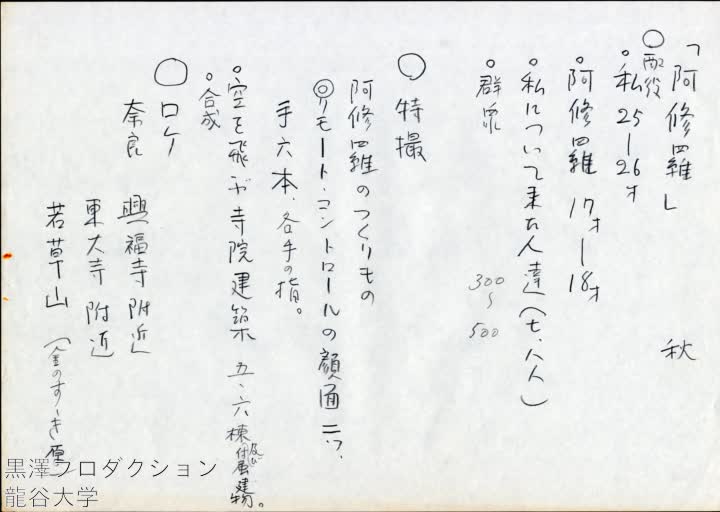 「阿修羅」　秋
○配役
○私 25－26才
○阿修羅 17才－18才
○私について来た人達（七、八人）
○群衆 300～500
○特撮
阿修羅のつくりもの
◎リモート・コントロールの顔面二ツ、
手六本、各手の指。
○空を飛ぶ寺院建築 五、六棟及び付属建物。
○合成
○ロケ
奈良 興福寺附近
東大寺附近
若草山（金のすゝき原）
黒澤プロダクション
龍谷大学